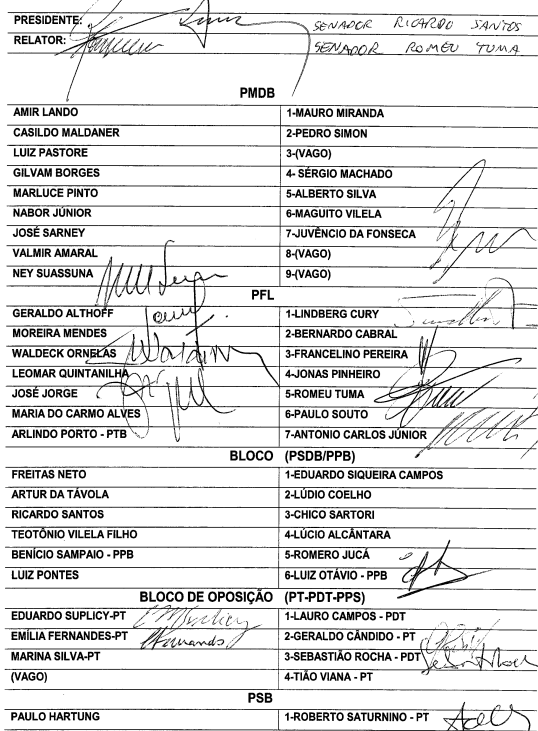 PRESIDENTE: SENADOR RICARDO SANTOS
RELATOR: SENADOR ROMEU TUMA
PMDB
AMIR LANDO 1-MAURO MIRANDA
CASILDO MALDANER 2-PEDRO SIMON
LUIZ PASTORE 3-(VAGO)
GILVAM BORGES 4- SÉRGIO MACHADO
MARLUCE PINTO 5-ALBERTO SILVA
NABOR JÚNIOR 6-MAGUITO VILELA
JOSÉ SARNEY 7-JUVÊNCIO DA FONSECA
VALMIR AMARAL 8-(VAGO)
NEY SUASSUNA 9-(VAGO)
PFL
GERALDO ALTHOFF 1-LINDBERG CURY
MOREIRA MENDES 2-BERNARDO CABRAL
WALDECK ORNELAS 3-FRANCELINO PEREIRA
LEOMAR QUINTANILHA 4-JONAS PINHEIRO
JOSÉ JORGE 5-ROMEU TUMA
MARIA DO CARMO ALVES 6-PAULO SOUTO
ARLINDO PORTO - PTB 7-ANTONIO CARLOS JÚNIOR
BLOCO (PSDB/PPB)
FREITAS NETO 1-EDUARDO SIQUEIRA CAMPOS
ARTUR DA TÁVOLA 2-LÚDIO COELHO
RICARDO SANTOS 3-CHICO SARTORI
TEOTÔNIO VILELA FILHO 4-LÚCIO ALCÂNTARA
BENÍCIO SAMPAIO - PPB 5-ROMERO JUCÁ
LUIZ PONTES 6-LUIZ OTÁVIO - PPB
BLOCO DE OPOSIÇÃO (PT-PDT-PPS)
EDUARDO SUPLICY-PT 1-LAURO CAMPOS - PDT
EMÍLIA FERNANDES-PT 2-GERALDO CÂNDIDO - PT
MARINA SILVA-PT 3-SEBASTIÃO ROCHA - PDT
(VAGO) 4-TIÃO VIANA - PT
PSB
PAULO HARTUNG 1-ROBERTO SATURNINO - PT